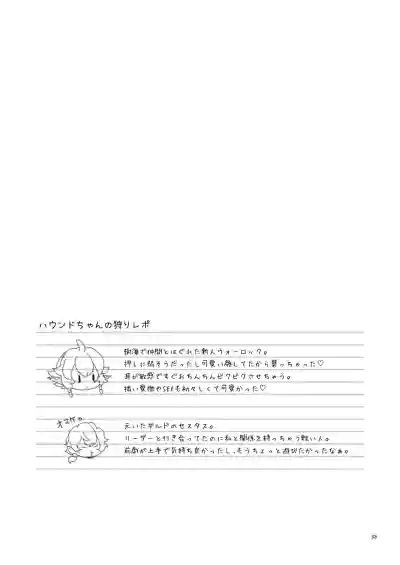 ハウンドちゃんの狩りレポ
樹海で仲間とはぐれた新人ウォーロック。
押しに弱そうだったし可愛い顔してたから襲っちゃった♡
耳が敏感ですぐおちんちんビクビクさせちゃう。
拙い愛撫やSEXも初々しくて可愛かった♡
オマケ
元いたギルドのセスタス。
リーダーと付き合ってたのに私と関係を持っちゃう軽い人。
前戯が上手で気持ち良かったし、もうちょっと遊びたかったなぁ。